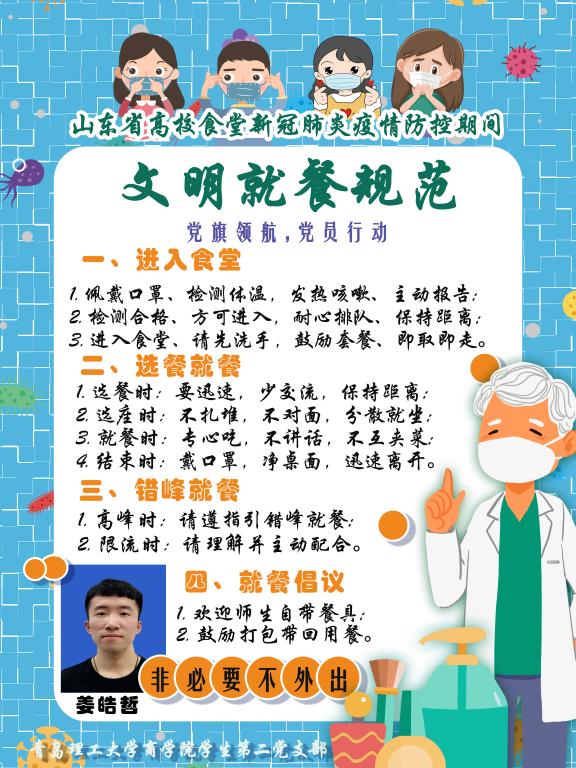 山东省高校食堂新冠肺炎疫情防控期间
文明就餐规范
党旗领航,党员行动
一、进入食堂
1.佩戴口罩、检测体温，发热咳嗽、主动报告；
2.检测合格、方可进入，耐心排队、保持距离；
3.进入食堂、请先洗手，鼓励套餐、即取即走。
二、选餐就餐
1.选餐时：要迅速，少交流，保持距离；
2.选座时：不扎堆，不对面，分散就坐；
3.就餐时：专心吃，不讲话，不互夹菜；
4.结束时：戴口罩，净桌面，迅速离开。
三、错峰就餐
1.高峰时：请遵指引错峰就餐；
2.限流时：请理解并主动配合。
四、就餐倡议
1.欢迎师生自带餐具；
2.鼓励打包带回用餐。
非必要不外出
姜皓哲
青岛理工大学商学院学生第二党支部